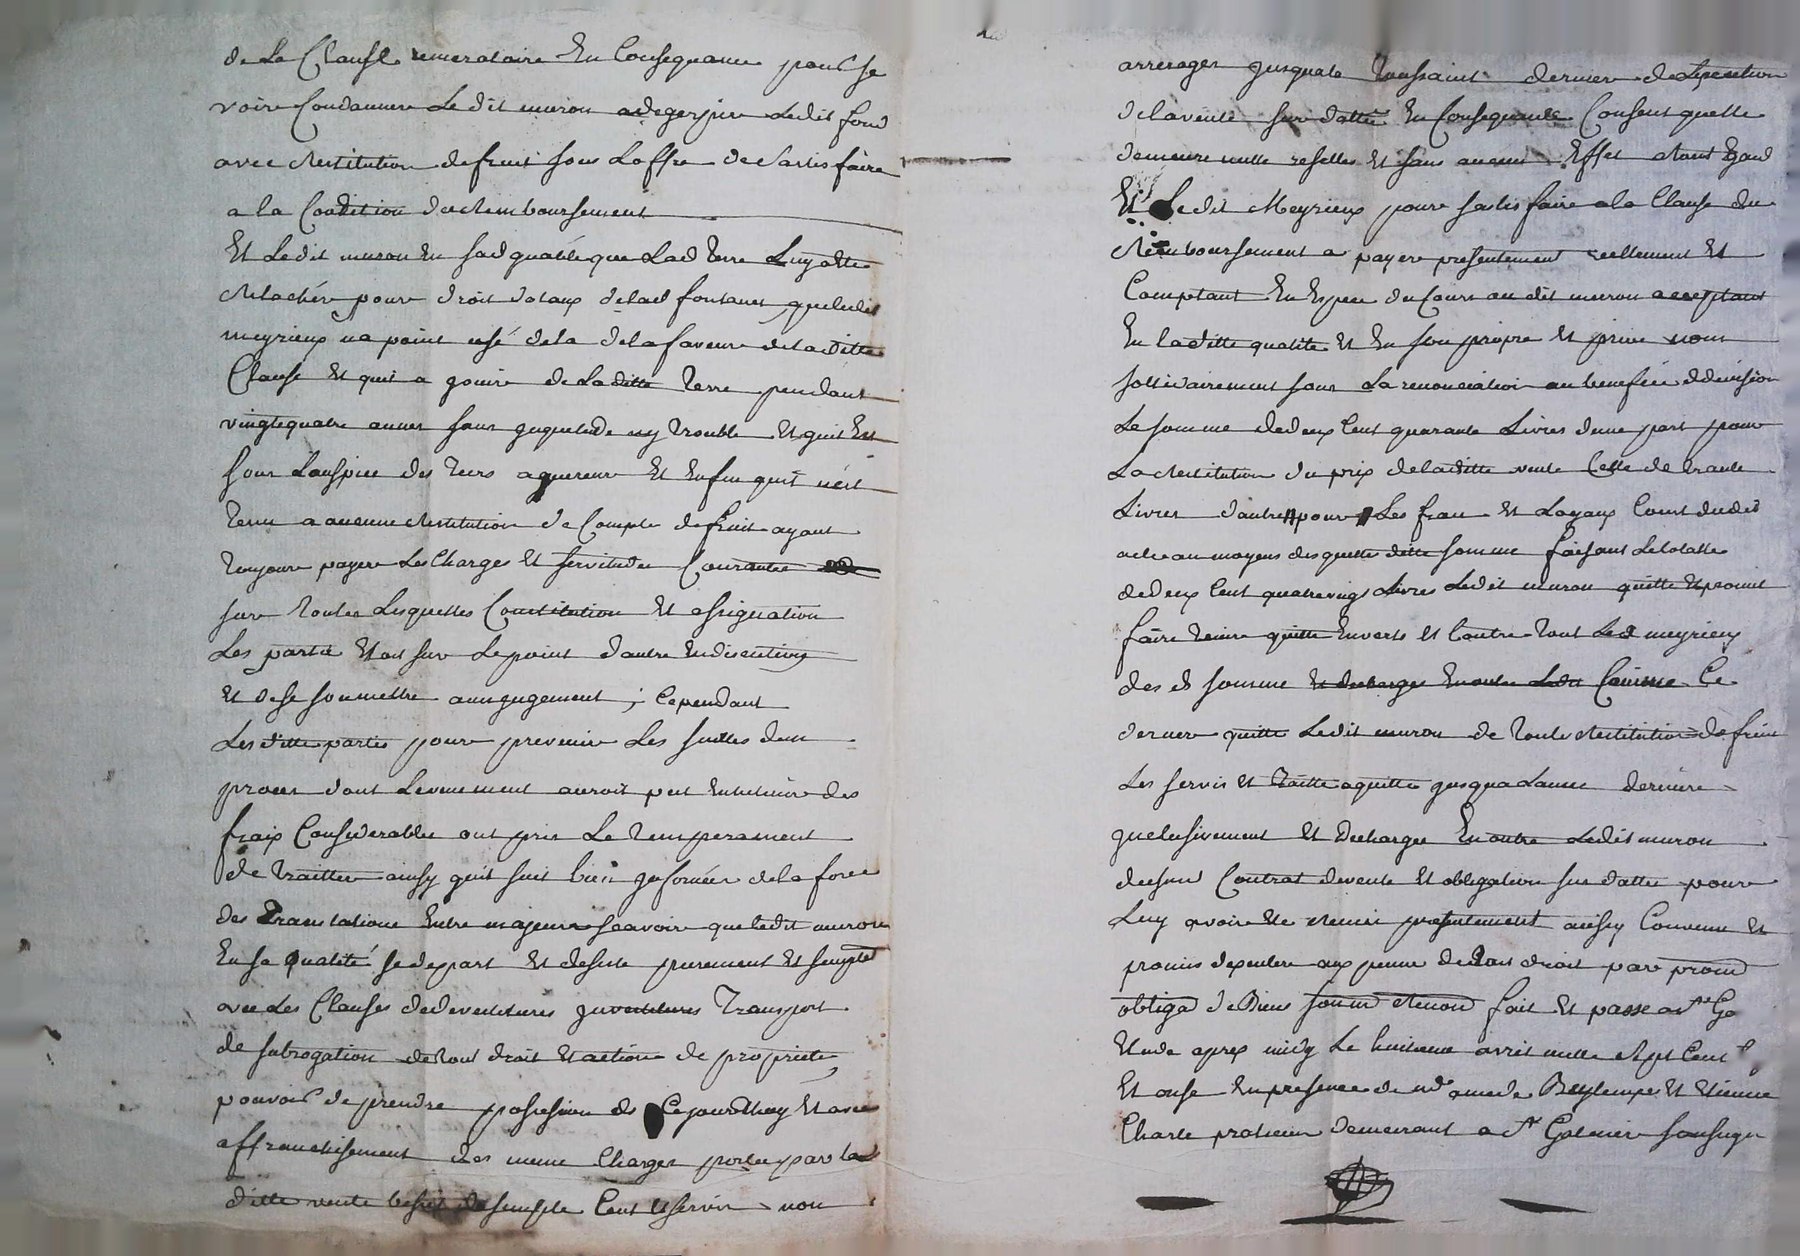 de la Clause remeratoire En Consequance pour se
voire Condanner Ledit muron adegerpir Ledit fond
avec Restitution de fruit sous Loffre de Sattisfaire
a la Condition du Remboursement
Et Ledit muron En lad qualité que Lad terre Luy a ette
Relachér pour droit dotaux delad fontanes que ledit
meyrieux na point usé de la de la faveur de laditte
Clause Et quil a gouire de Laditte terre pendant
vingtquatre annes sans
sous Lauspice des tiers aquereur Et Enfin quil nest
tenu a aucunne Restitution de Compte de fruit ayant
toujour payer Les Charges Et servitudes Courantes
sur toutes Lesquelles Constitution Et assignation
Les partie Etoit sur Le point dantre En discutions
Et de se soumettre aun gugement ; Cependant
Les ditte parties pour prevenir Les suittes dun
proces dont Levenement auroit peut des
fraix Considerables ont pris Le temperament
de traitter ainsy quil suit bien Jnformées de la force
des translations Entre majeurs scavoir que ledit muron
En sa qualité se depart Et desiste purement Et simplet
avec Les Clauses de devestitures Jnvestitures transport
de subrogation de tout droit Et actions de propriete
pouvoir de prendre possession des Ce jourdhuy Et avec
affranchissement des meme Charges portée par la
ditte vente de simple Cent Et servis non
arrerages Jusqua la toussaint dernier
de la vente sus datté En Consequance Consent quelle
demeure nulle resollue Et sans aucun Effet
Et Ledit Meyrieux pour sattisfaire a la Clause du
Remboursement a payer presentement reellement Et
Comptant En Espece du Cours au dit muron acceptant
En laditte qualité Et En son propre Et prive nom
sollidairement sous La renonciation au benefice de division
La somme de deux Cent quarante Livres dune part pour
La Restitution du prix de laditte vente Celle de trante
Livres dautre pour Les frais Et Loyaux Couts dudit
acte au moyens des quelle ditte somme faisant le totalle
de deux Cent quatrevingt Livres Ledit muron quitte Et promit
faire tenire quitte Envers Et Contre tout Led meyrieux
des d somme Ce
dernier quitte Ledit muron de toute Restitution de fruit
Les servis Et taille aquitté jusqua Lanne derniere
Jnclusivement Et decharge En outre Ledit muron
dusus Contrat de vente Et obligation sus datte pour
Luy avoir Ete Remis presentement ainsy Convenu Et
promis dexecuter aux peine de tout droit par promd
obligd de Biens soumd Renond fait Et passe a St Ga
Etude apres midy Le huitieme avril mille Sept Cent
Et onse En presence de Et Etienne
Charle praticien demeurant a St Galmier soussigne